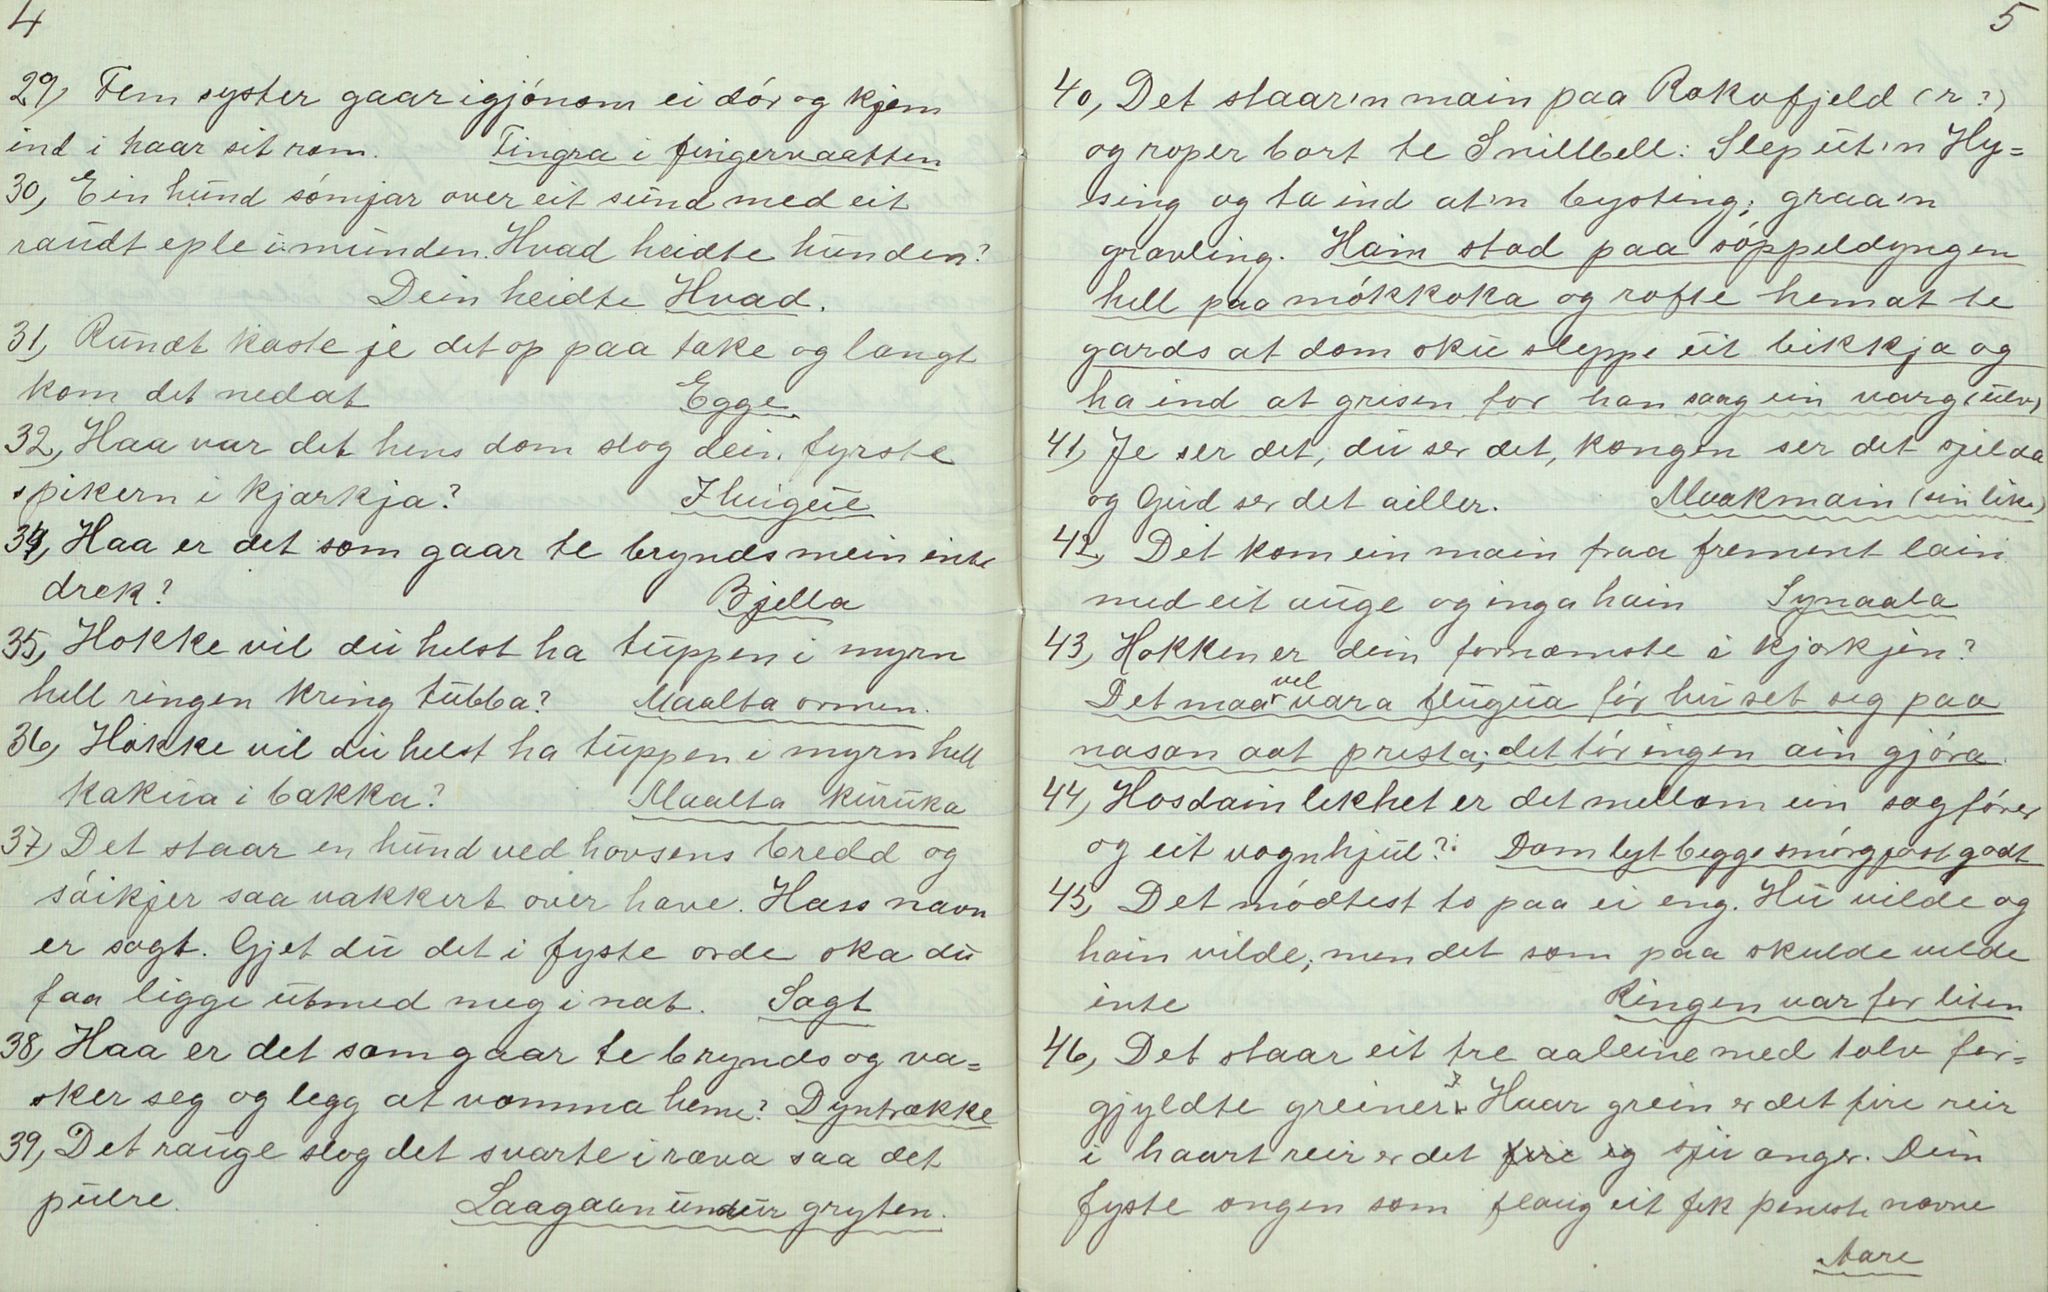 4
29, Fem syster gaar igjónom ei dór og kjem
ind i haar sit rom. Fingra i fingervaatten
30, Ein hund sómjar over eit sund med eit
raudt eple i munden. Hvad heidte hunden?
Dein heidte Hvad.
31, Rundt kaste je det op paa take og langt
kom det nedat Egge
32, Haa var det hens dom slog dein fyrste
spikern i kjærkja? I hugue
34, Haa er det som gaar te brynds mein inte
drek? Bjella
35, Hokke vil du helst ha tuppen i myrn
hell ringen kring tubba? Maalta ormen.
36, Hokke vil du helst ha tuppen i myrn hell
kakua i bakka? Maalta kuruka
37, Det staar en hund ved hovsens bredd og
sóikjer saa vakkert over have. Hass navn
er sagt. Gjet du det i fyste orde ska du
faa ligge utmed meg i nat. Sagt
38, Haa er det som gaar te brynds og va=
sker seg og legg at vomma heme? Dyntrække
39, Det rauge slog det svarte i ræva saa det
putre. Laagaan undur gryten.
5
40, Det staar'n main paa Rakafjeld (r?)
og roper bort te Snillbell: Slep ut'n Hy=
sing og ta ind at'n bysting; graa'n
gravling. Hain stod paa sóppeldyngen
hell paa mókkoka og rofte hemat te
gards at dom sku sleppe ut bikkja og
ha ind at grisen for han saag ein varg (ulv)
41, Je ser det, du ser det, kongen ser det sjelda
og Gud ser det ailler. Maakmain (sin like)
42, Det kom ein main fraa frement lain
med eit auge og inga hain Synaala
43, Hokken er dein fornæmste i kjærkjen?
Det maa vel vara flugua fór hu set seg paa
nasan aat presta; det tór ingen ain gjóra.
44, Hosdain likhet er det mellom ein sagfórer
og eit vognhjul? Dom lyt begge smórgjast godt
45, Det módtest to paa ei eng. Hu vilde og
hain vilde; men det som paa skulde vilde
inte Ringen var for liten
46, Det staar eit tre aaleine med tolv for=
gjyldte greiner. I Huar grein er det fire reir
i haart reir er det fire eg sju onger. Dein
fyste ongen som flaug ut fek peneste navne
Aare